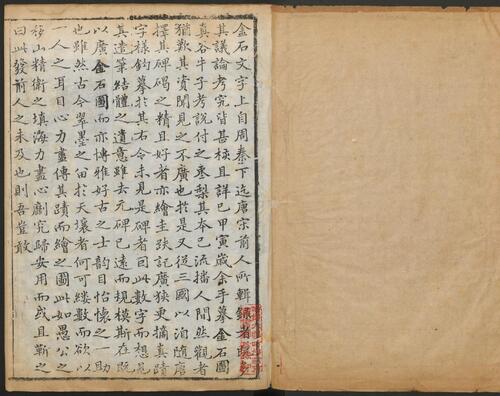 金石文字上自周秦下迄唐宗前人所輯錄者
其議論考究皆甚核且詳已甲寅歲余手摹金石圖
真谷牛子考說付之棗梨其本已流播人間然觀者
猶歎其資聞見之不廣也於是又從三國以洎隋唐
擇其碑碣之精且好者亦繪圭趺記廣狹更摘其蹟
字樣鈎摹於其右今未見是碑者曰此數字而想見
其遠筆結體之遺意雖去元碑已遠而規模斯在既
以廣金石圖而亦博雅好古之士韵目怡懷之一助
也雖然古今翠墨之宙於天壤者何可縷數而欲以
一人之耳目心力盡傳其蹟而繪之圖此如愚公之
移山精衛之填海力盡心劇究歸安用而或且靳之
曰此發前人之未及也則吾豈敢